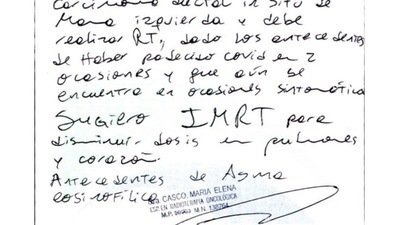 carcinoma ductal in situ de
Mama izquierda y debe
realizar RT, dado los antecedentes
de Haber padecido covid en 2
ocasiones y que aún se
encuentra en ocasiones sintomática
Sugiero IMRT para
disminuir dosis en pulmones
y corazón.
Antecedentes de Asma
eosinofílica
CASCO, MARIA ELENA
ESP. EN RADIOTERAPIA ONCOLÓGICA
M.N. 138764